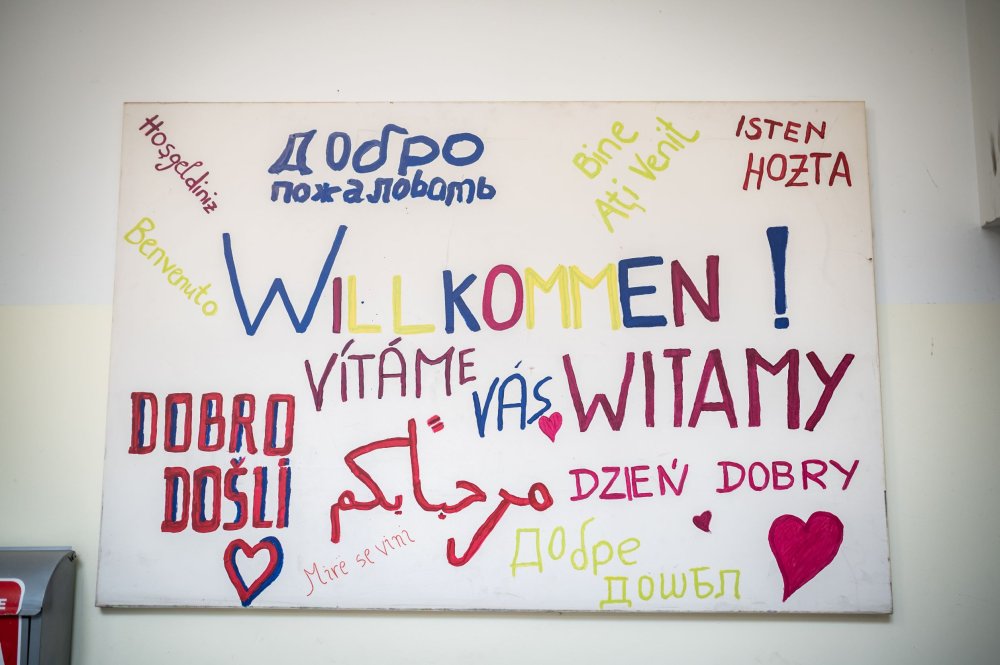 Hoşgeldiniz
Добро
пожаловать
Bine
Aţi Venit
ISTEN
HOZTA
Benvenuto
WILLKOMMEN!
VÍTÁME
VÁS
WITAMY
DOBRO
DOŠLI
مرحبا بكم
DZIEŃ DOBRY
Mirë se vini
Добре
дошъл